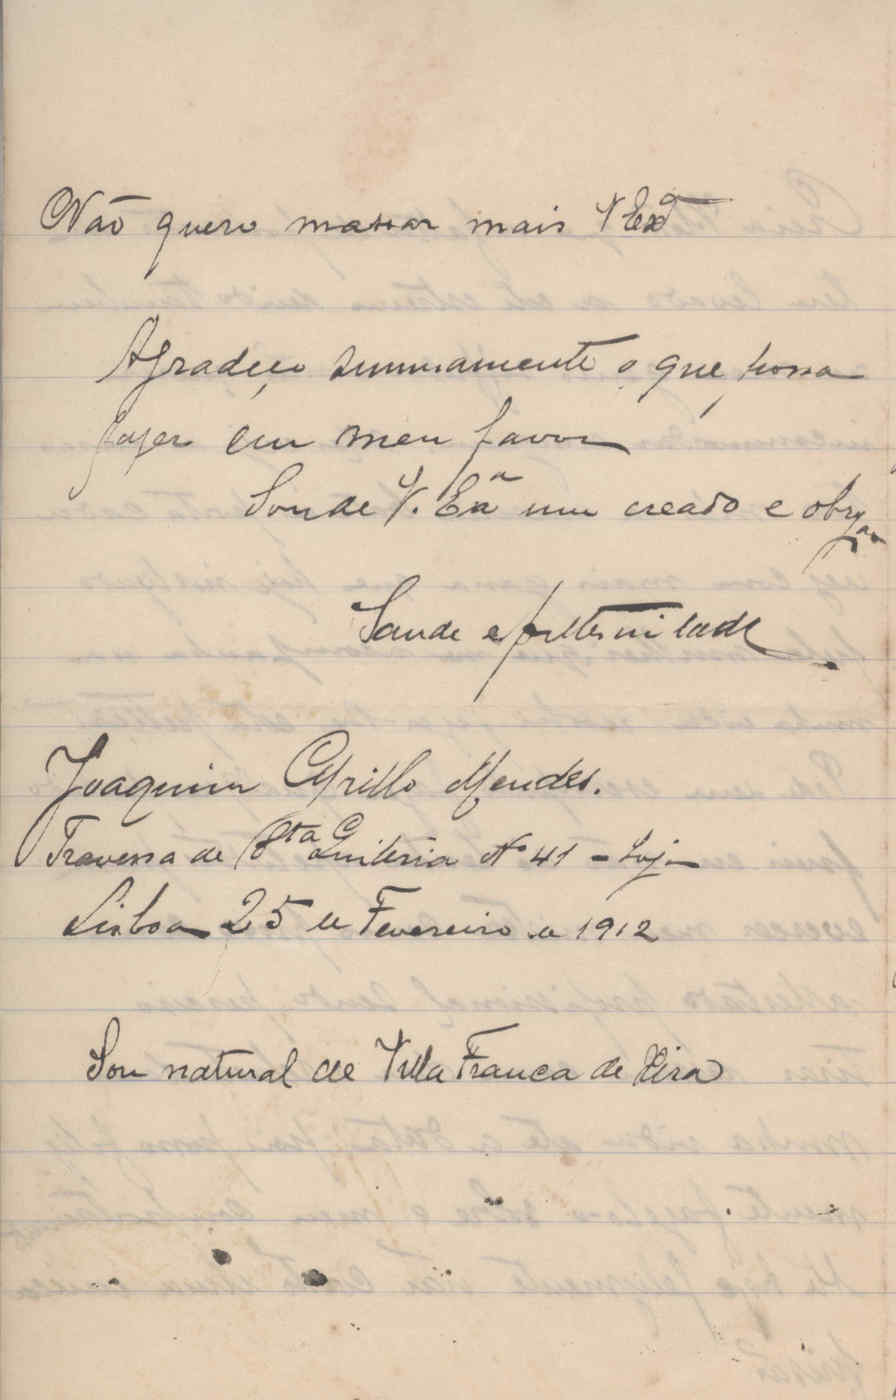 Não quero massar mais V Exª
Agradeço summamente o que possa
fazer em meu favor
Sou de V. Exª um creado e obrgº
Saude e fraternidade
Joaquim Cyrillo Mendes.
Travessa de Sta Quiteria Nº 41 - Loja
Lisboa 25 de Fevereiro de 1912
Sou natural de Villa Franca de Xira